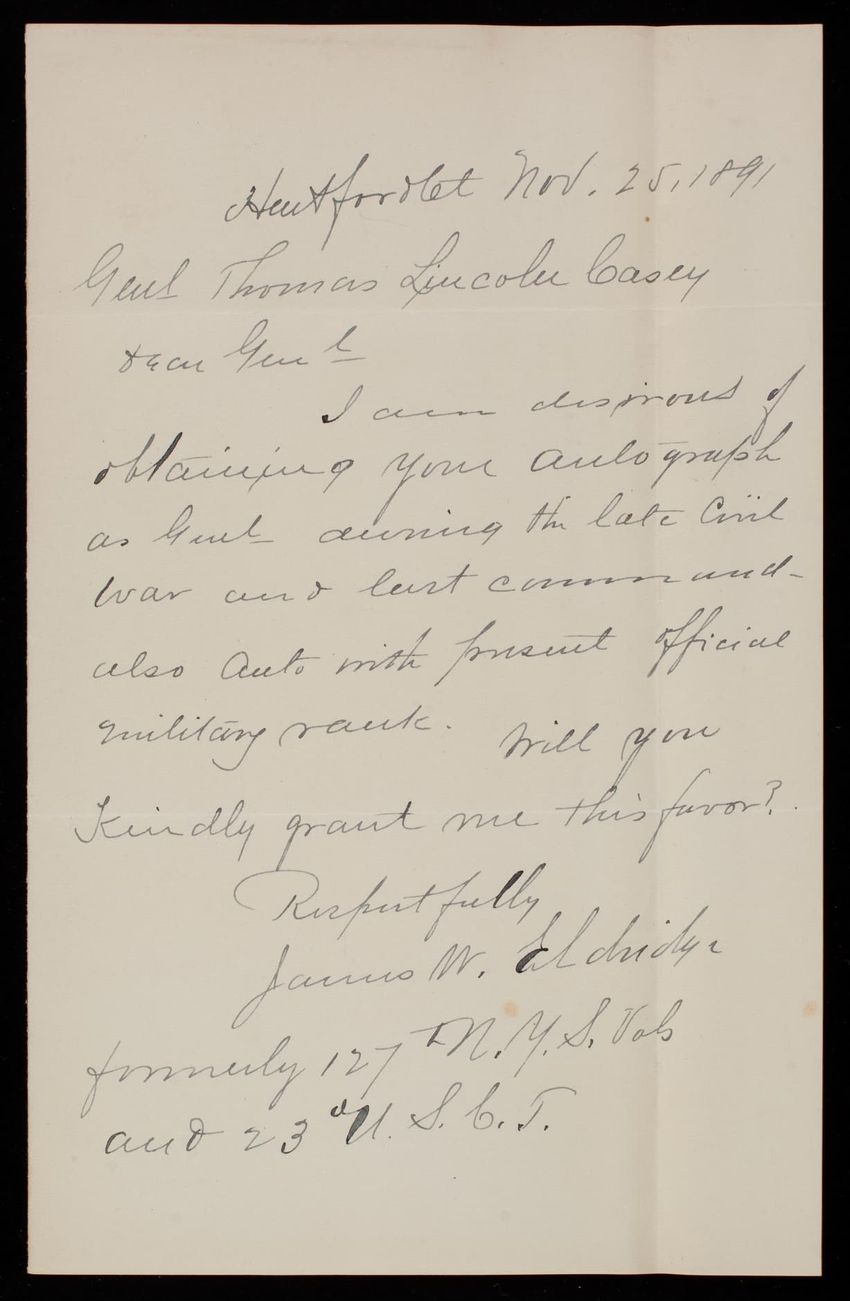 Hartford Ct Nov. 25, 1891
Genl Thomas Lincoln Casey
Dear Genl
I am desirous of
obtaining your autograph
as Genl during the late Civil
War and last command-
also Auto with present official
military rank. Will you
Kindly grant me this favor?
Respectfully
James W. Eldridge
formerly 127th N.Y.S. Vols
and 23d U.S.C.T.